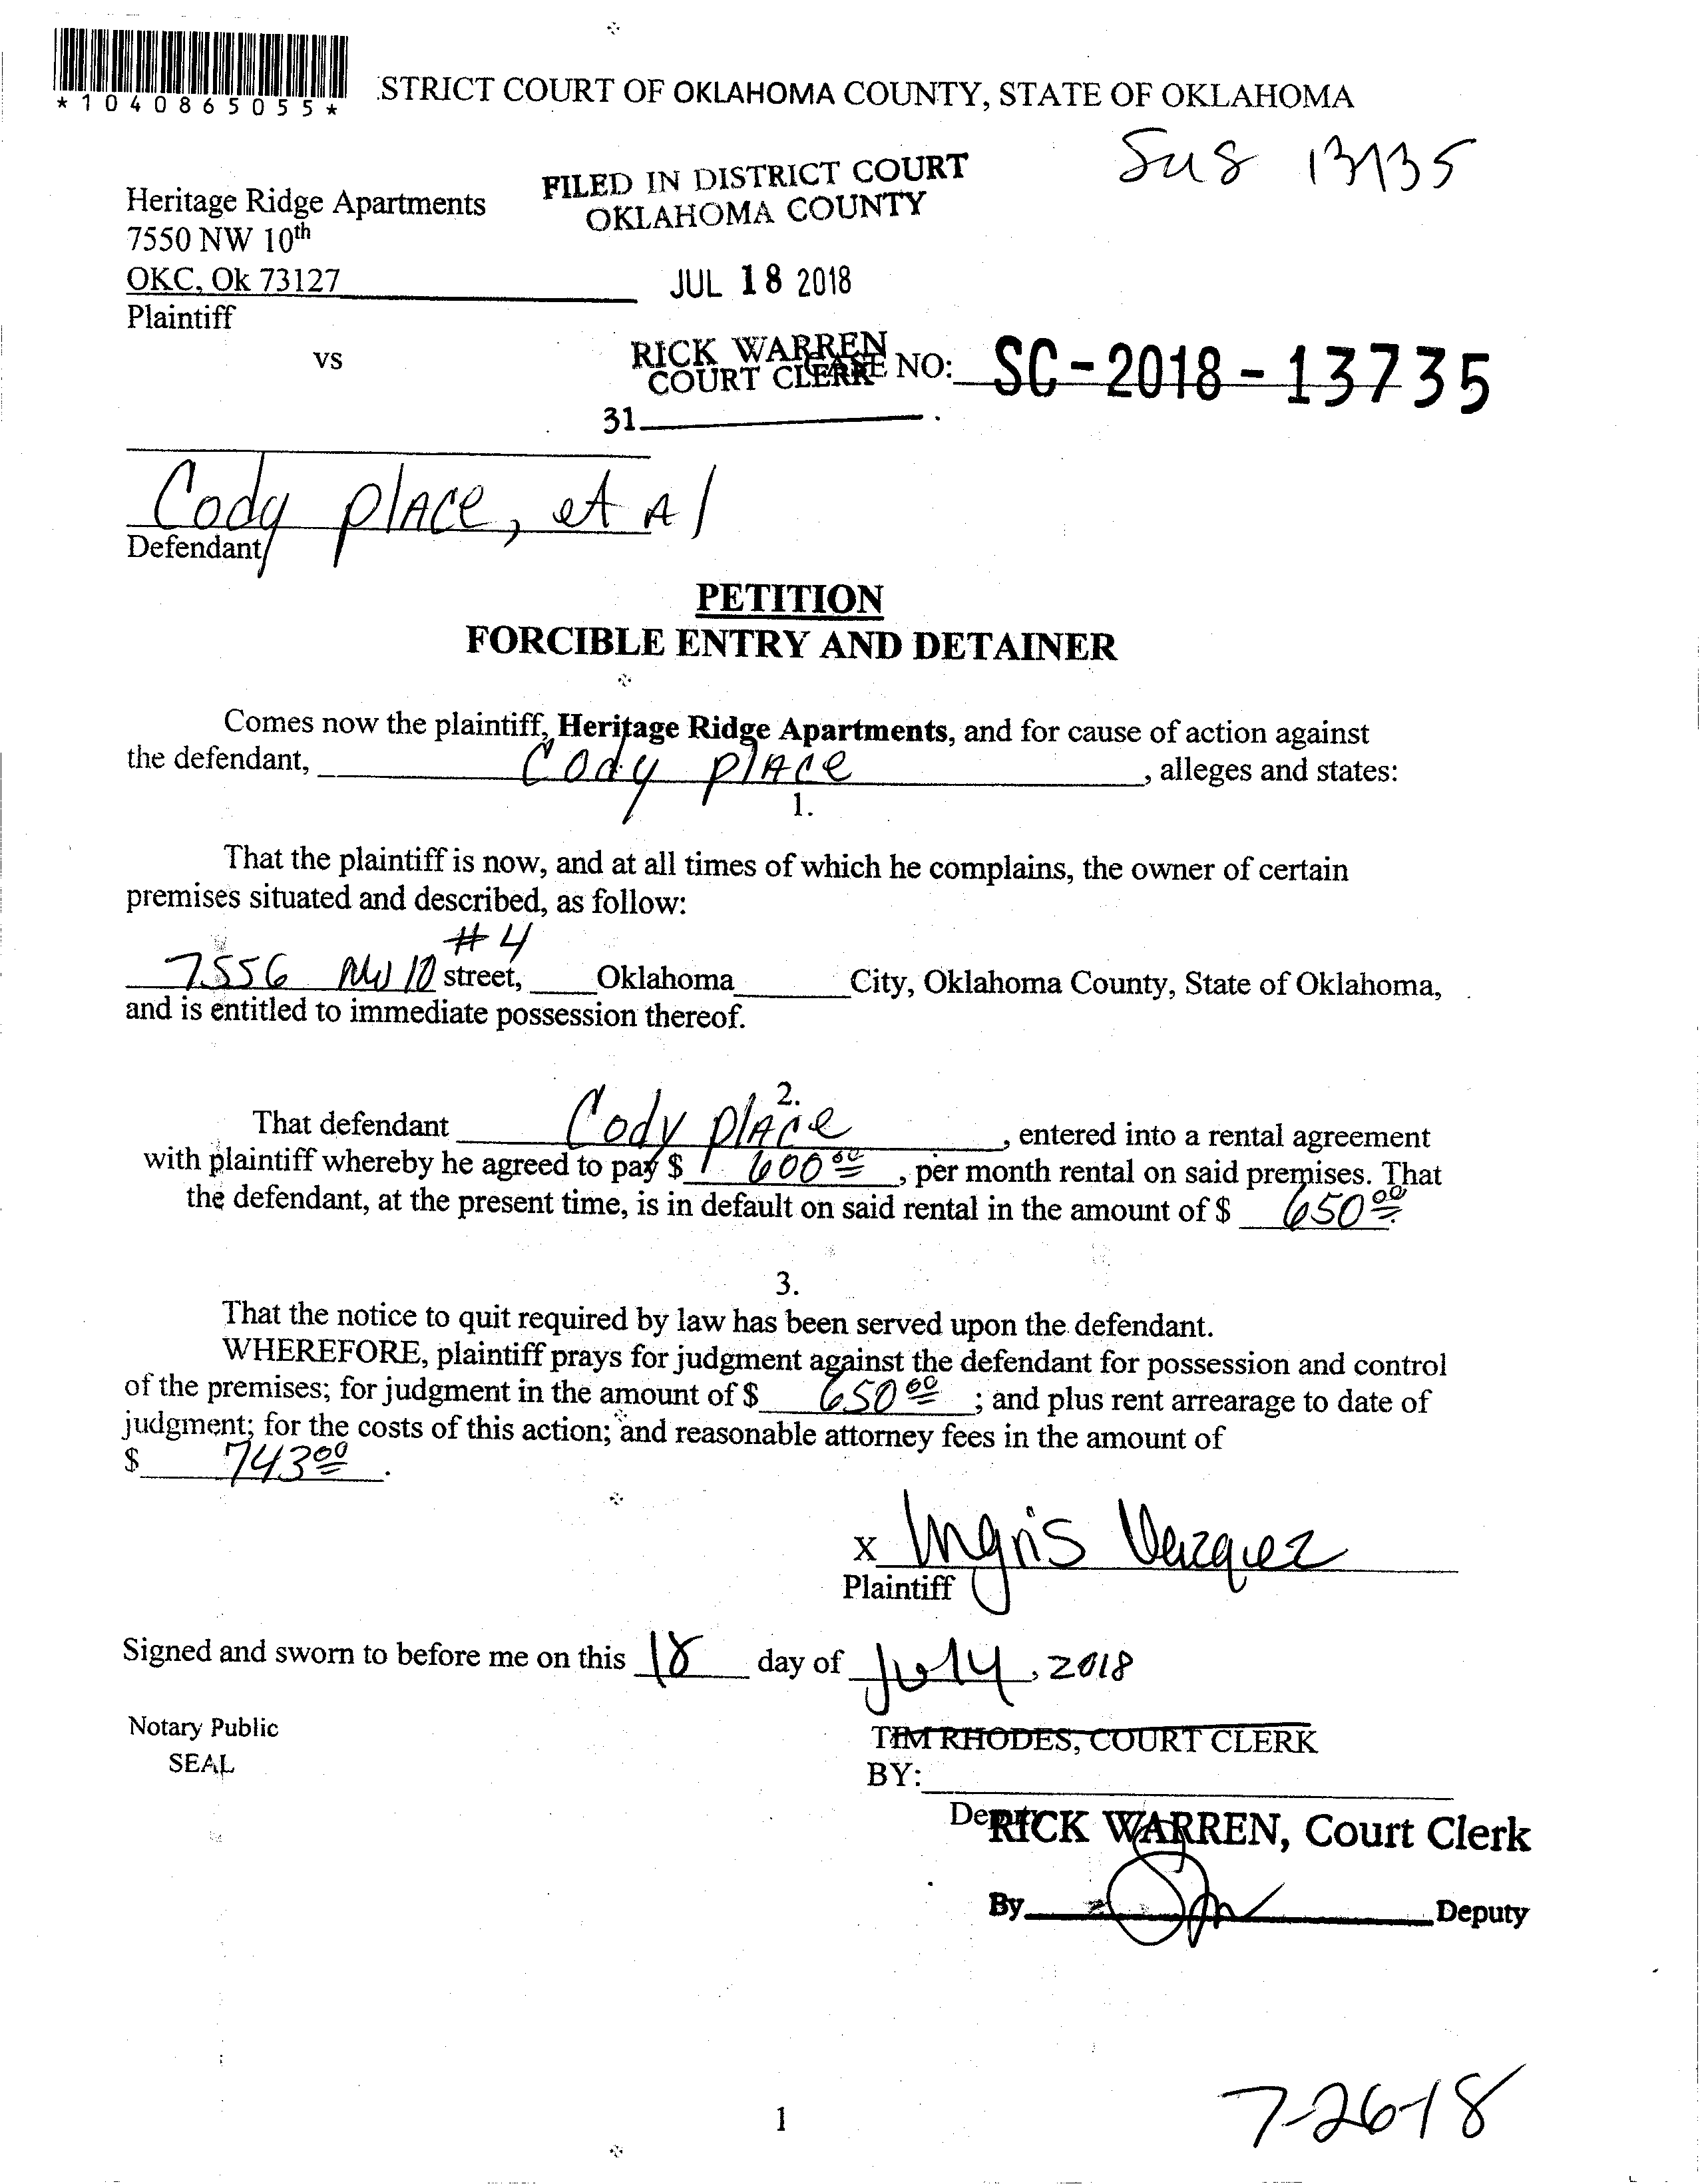 *1040865055*
STRICT COURT OF OKLAHOMA COUNTY, STATE OF OKLAHOMA
13735
Heritage Ridge Apartments
7550 NW 10th
OKC, Ok 73127
Plaintiff
vs
FILED IN DISTRICT COURT
OKLAHOMA COUNTY
JUL 18 2018
RICK WARREN
COURT CLERK
31
CASE NO: SC-2018-13735
Cody place, et Al
Defendant
PETITION
FORCIBLE ENTRY AND DETAINER
Comes now the plaintiff, Heritage Ridge Apartments, and for cause of action against
the defendant, Cody place, alleges and states:
1.
That the plaintiff is now, and at all times of which he complains, the owner of certain
premises situated and described, as follow:
#4
7556 NW 10 street, Oklahoma City, Oklahoma County, State of Oklahoma,
and is entitled to immediate possession thereof.
2.
That defendant Cody place, entered into a rental agreement
with plaintiff whereby he agreed to pay $ 600 00, per month rental on said premises. That
the defendant, at the present time, is in default on said rental in the amount of $ 650 00
3.
That the notice to quit required by law has been served upon the defendant.
WHEREFORE, plaintiff prays for judgment against the defendant for possession and control
of the premises; for judgment in the amount of $ 650 00; and plus rent arrearage to date of
judgment; for the costs of this action; and reasonable attorney fees in the amount of
$ 743 00.
x Ingris Vazquez
Plaintiff
Signed and sworn to before me on this 18 day of July, 2018
Notary Public
SEAL
TIM RHODES, COURT CLERK
BY:
RICK WARREN, Court Clerk
By Deputy
1
7-26-18